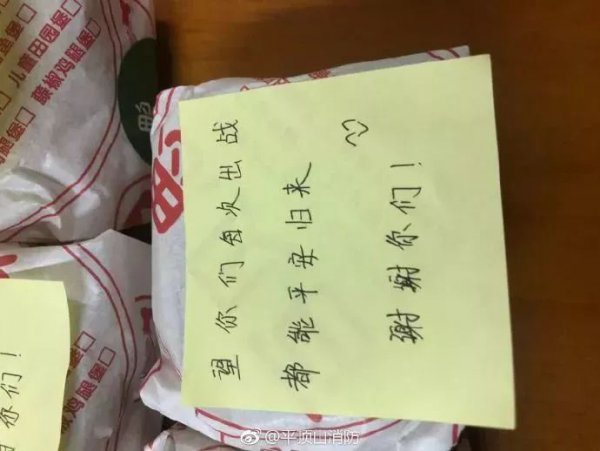 儿童田园堡
藤椒鸡腿堡
望你们每次出战
都能平安归来
谢谢你们!
鸡腿堡
你们!
@平顶山消防